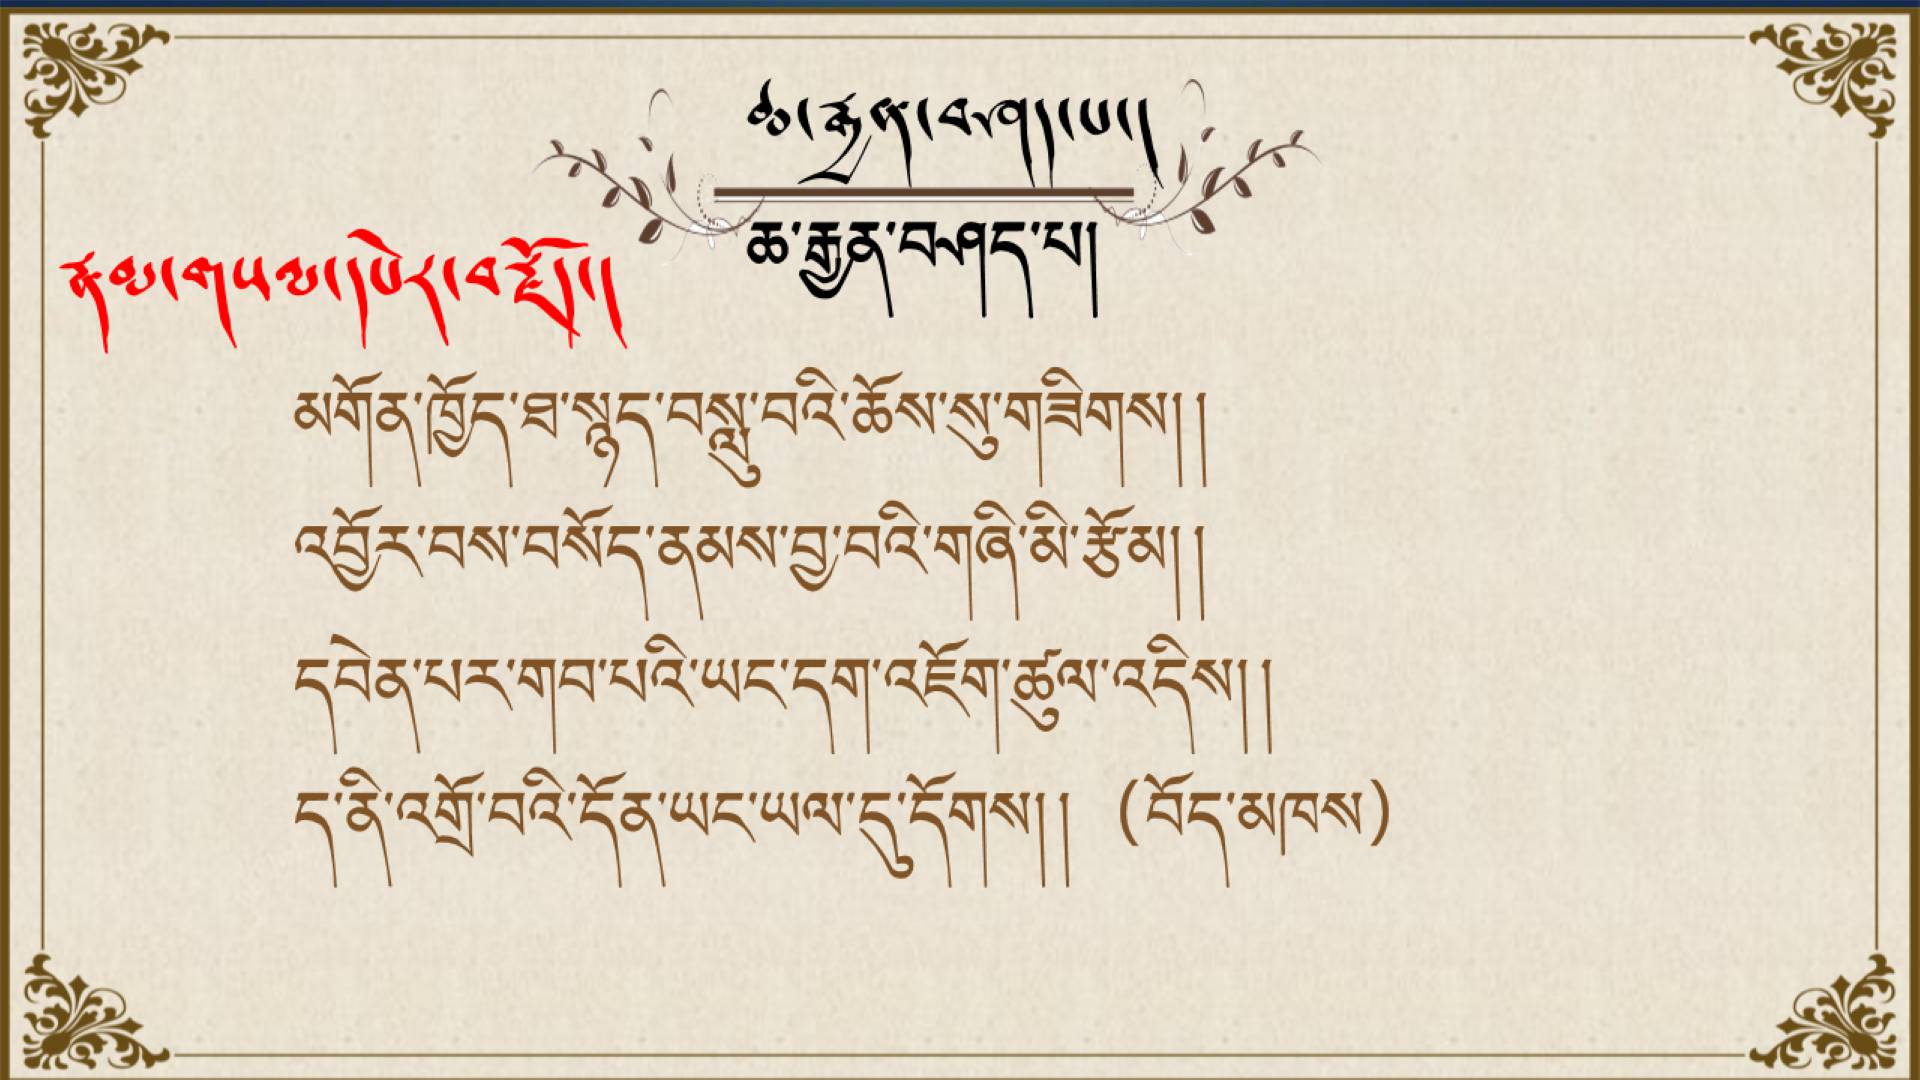 ཆ་རྒྱན་བཤད་པ།
ཆ་རྒྱན་བཤད་པ།
ནམ་གཡས་།པེར་བརྗོད།
མགོན་ཁྱོད་ཐ་སྙད་བསླུ་བའི་ཆོས་སུ་གཟིགས།།
འབྱོར་བས་བསོད་ནམས་བྱ་བའི་གཞི་མི་རྩོམ།།
དབེན་པར་གབ་པའི་ཡང་དག་འཇོག་ཚུལ་འདིས།།
ད་ནི་འགྲོ་བའི་དོན་ཡང་ཡལ་དུ་དོགས།། (བོད་མཁས)